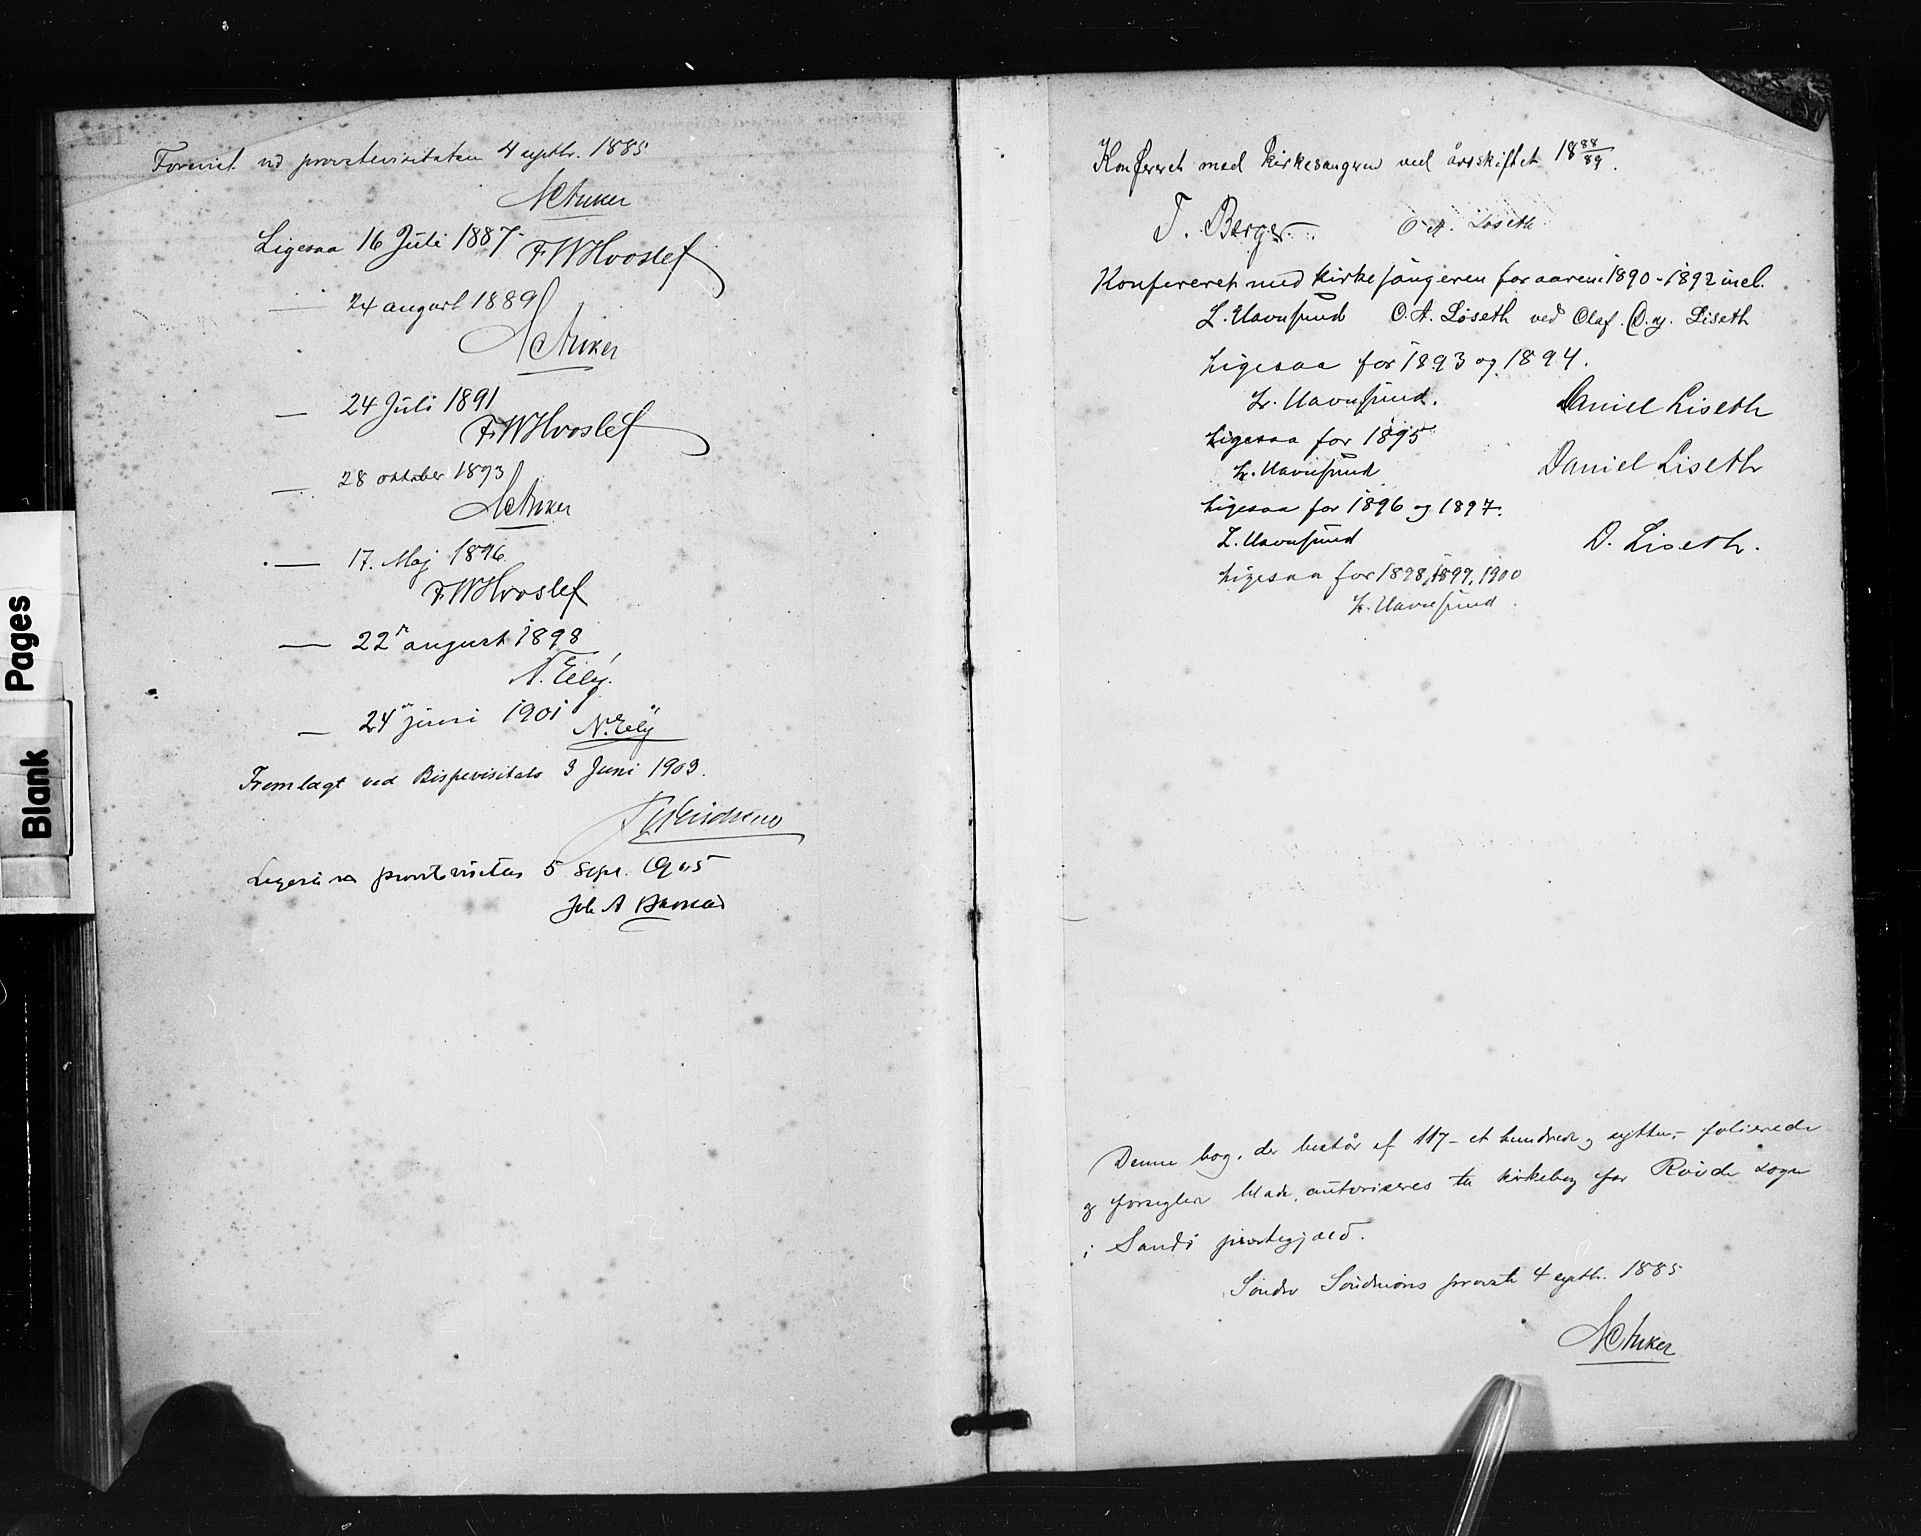 Forevist ved provstevisitatsen 4 septbr. 1885
NCAnker
Ligesaa 16 Juli 1887 F.W Hvoslef
— 24 august 1889
NCAnker
— 24 Juli 1891
F.W Hvoslef
— 28 oktober 1893
NCAnker
— 17. Maj 1896
F.W Hvoslef
— 22 august 1898
— 24 juni 1901
Fremlagt ved Bispevisitats 3 Juni 1903.
provstevisitas 5 Sept. 1905
Joh A
Konfereret med kirkesangeren ved årsskiftet 18 88/89.
T. Berge O. A. Løseth
Konfereret med kirkesangeren for aarene 1890-1892 incl.
L. Havnsund O. A. Løseth ved Olaf. Liseth
Ligesaa for 1893 og 1894.
L. Havnsund. Daniel Liseth
Ligesaa for 1895
L. Havnsund Daniel Liseth
Ligesaa for 1896 og 1897.
L. Havnsund D. Liseth.
Ligesaa for 1898, 1899, 1900
L. Havnsund
Denne bog, der består af 117 - et hundrede og sytten - folierede
og forseglede blade, autoriseres til kirkebog for Røvde sogn
i Sandø prestegjæld.
Søndre Søndmørs provsti 4 septbr. 1885
NCAnker
Blank Pages